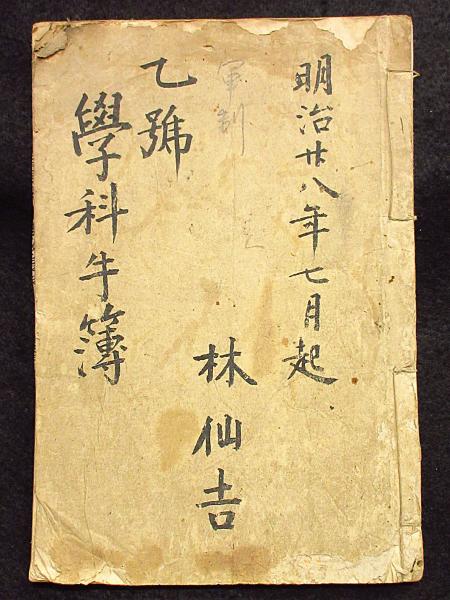 明治廿八年七月起
林仙吉
軍制
乙號
學科手簿